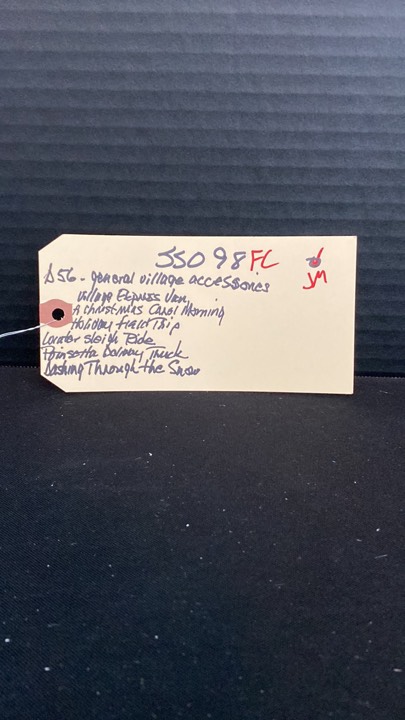 SSO98FC
JM
D56 - general village accessories
Village Express Van,
A Christmas Carol Morning
Holiday Field Trip
Sleigh Ride
Poinsettia Delivery Truck
Dashing Through the Snow